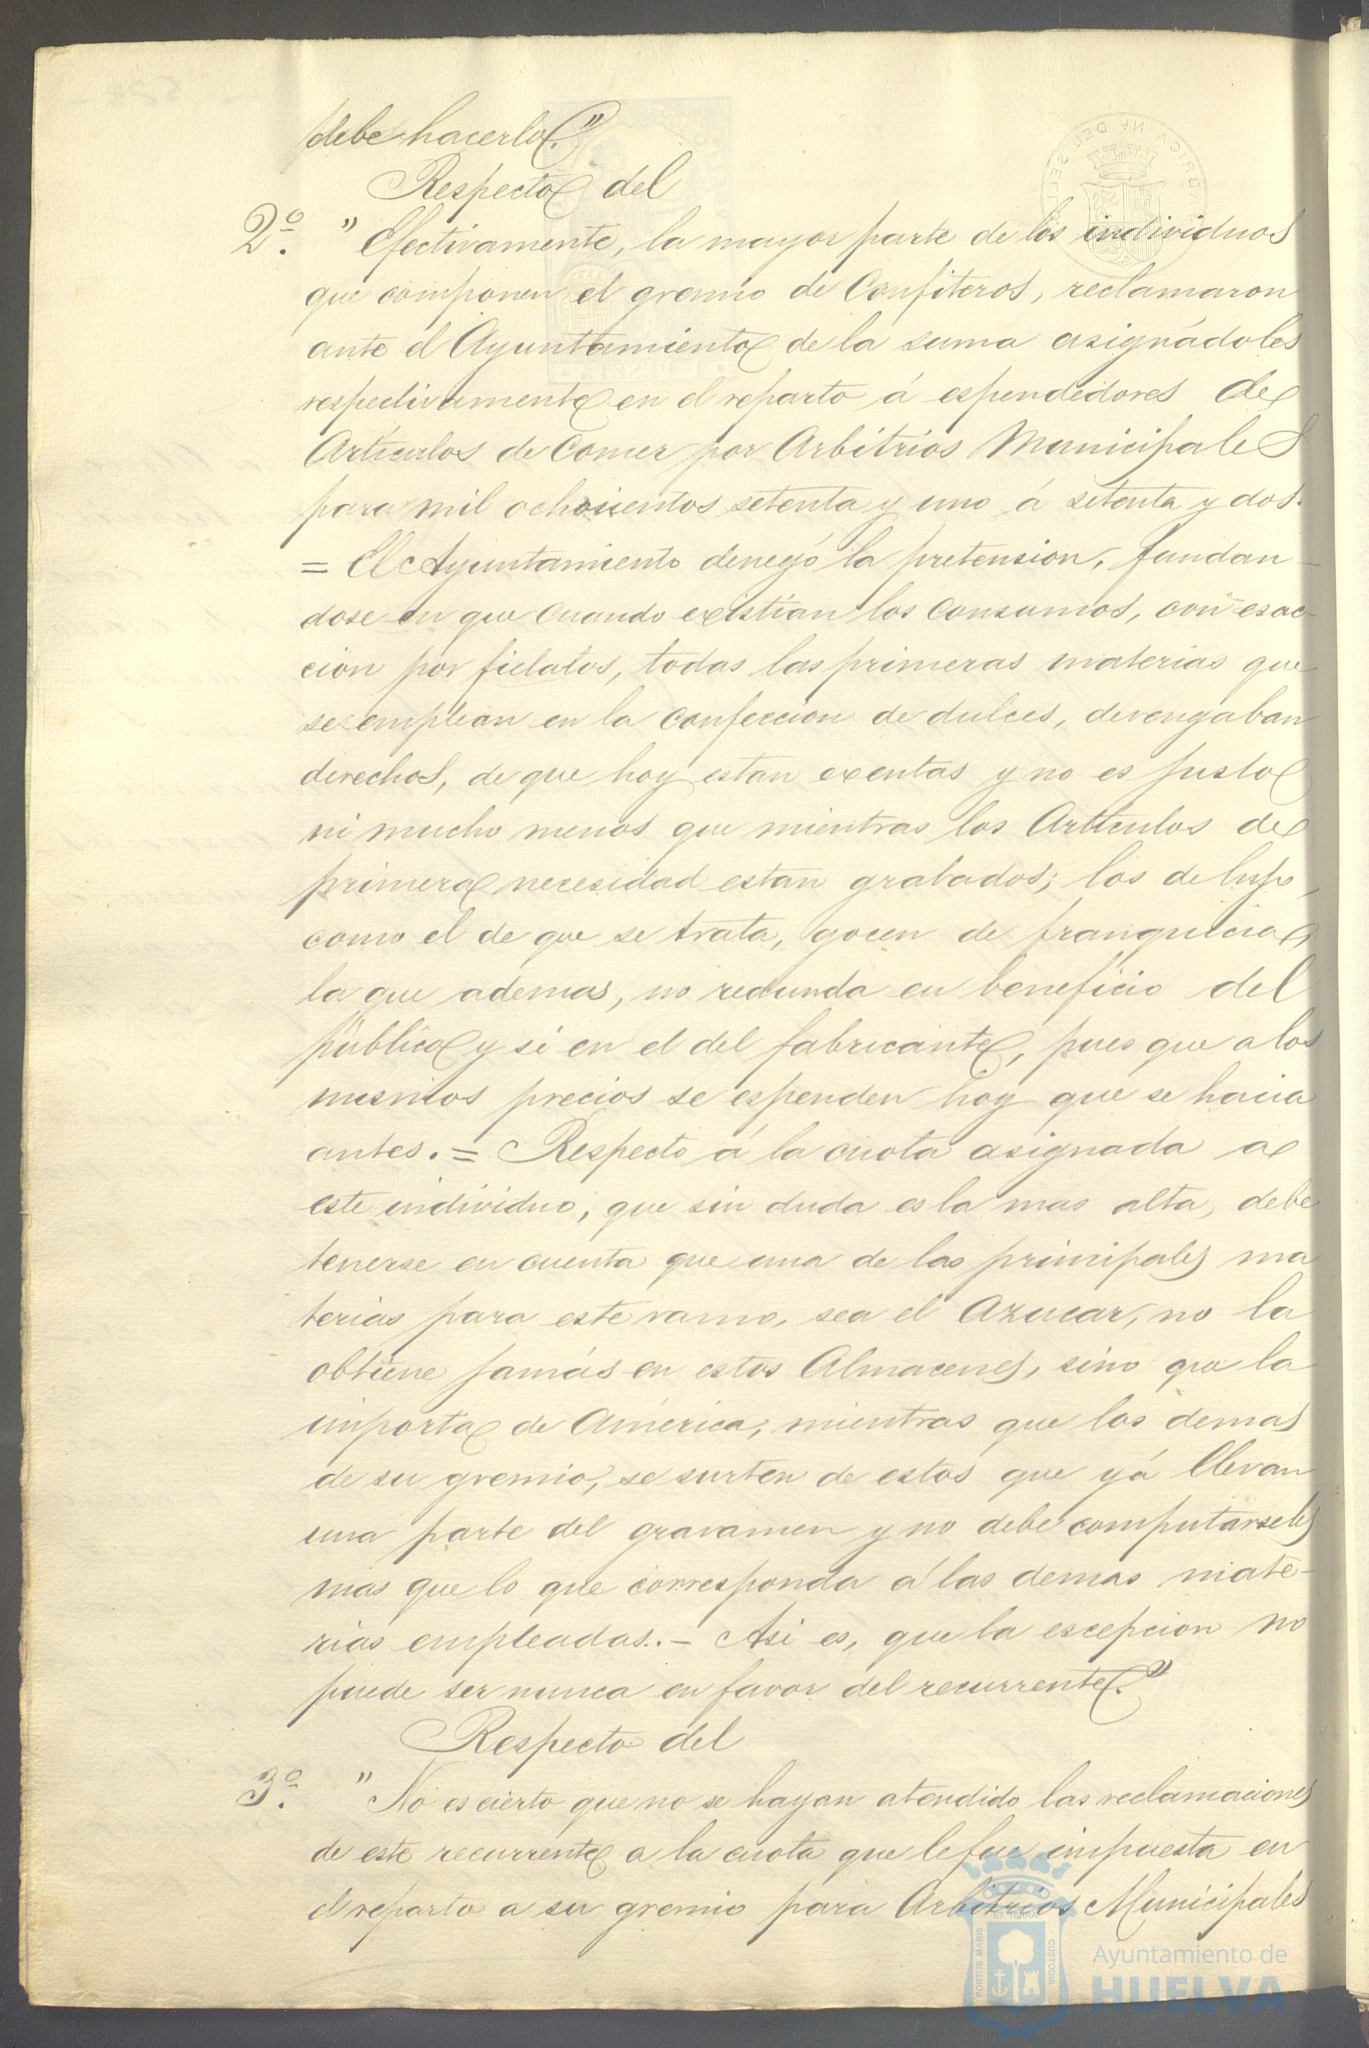 debe hacerlo."
Respecto del
2º. " Efectivamente, la mayor parte de los individuos
que componen el gremio de Confiteros, reclamaron
ante el Ayuntamiento de la suma asignádoles
respectivamente en el reparto á espendedores de
Artículos de Comer por Arbitrios Municipales
para mil ochocientos setenta y uno á setenta y dos.
= El Ayuntamiento denegó la pretension, fundan-
dose en que cuando existían los Consumos, con esac-
cion por fielatos, todas las primeras materias que
se emplean en la confeccion de dulces, devengaban
derechos, de que hoy estan exentas y no es justo
ni mucho menos que mientras los Artículos de
primera necesidad estan grabados; los de lujo,
como el de que se trata, gocen de franquicia,
la que ademas, no redunda en beneficio del
público y sí en el del fabricante, pues que a los
mismos precios se espenden hoy que se hacia
antes. = Respecto á la cuota asignada a
este individuo, que sin duda es la mas alta, debe
tenerse en cuenta que una de las principales ma
terias para este ramo, sea el Azucar, no la
obtiene jamás en estos Almacenes, sino que la
importa de América; mientras que los demas
de su gremio, se surten de estos que yá llevan
una parte del gravamen y no debe computarseles
mas que lo que corresponda á las demas mate-
rias empleadas. - Asi es, que la escepcion no
puede ser nunca en favor del recurrente."
Respecto del
3º. " No es cierto que no se hayan atendido las reclamaciones
de este recurrente a la cuota que le fue impuesta en
el reparto a su gremio para Arbitrios Municipales
Ayuntamiento de
HUELVA